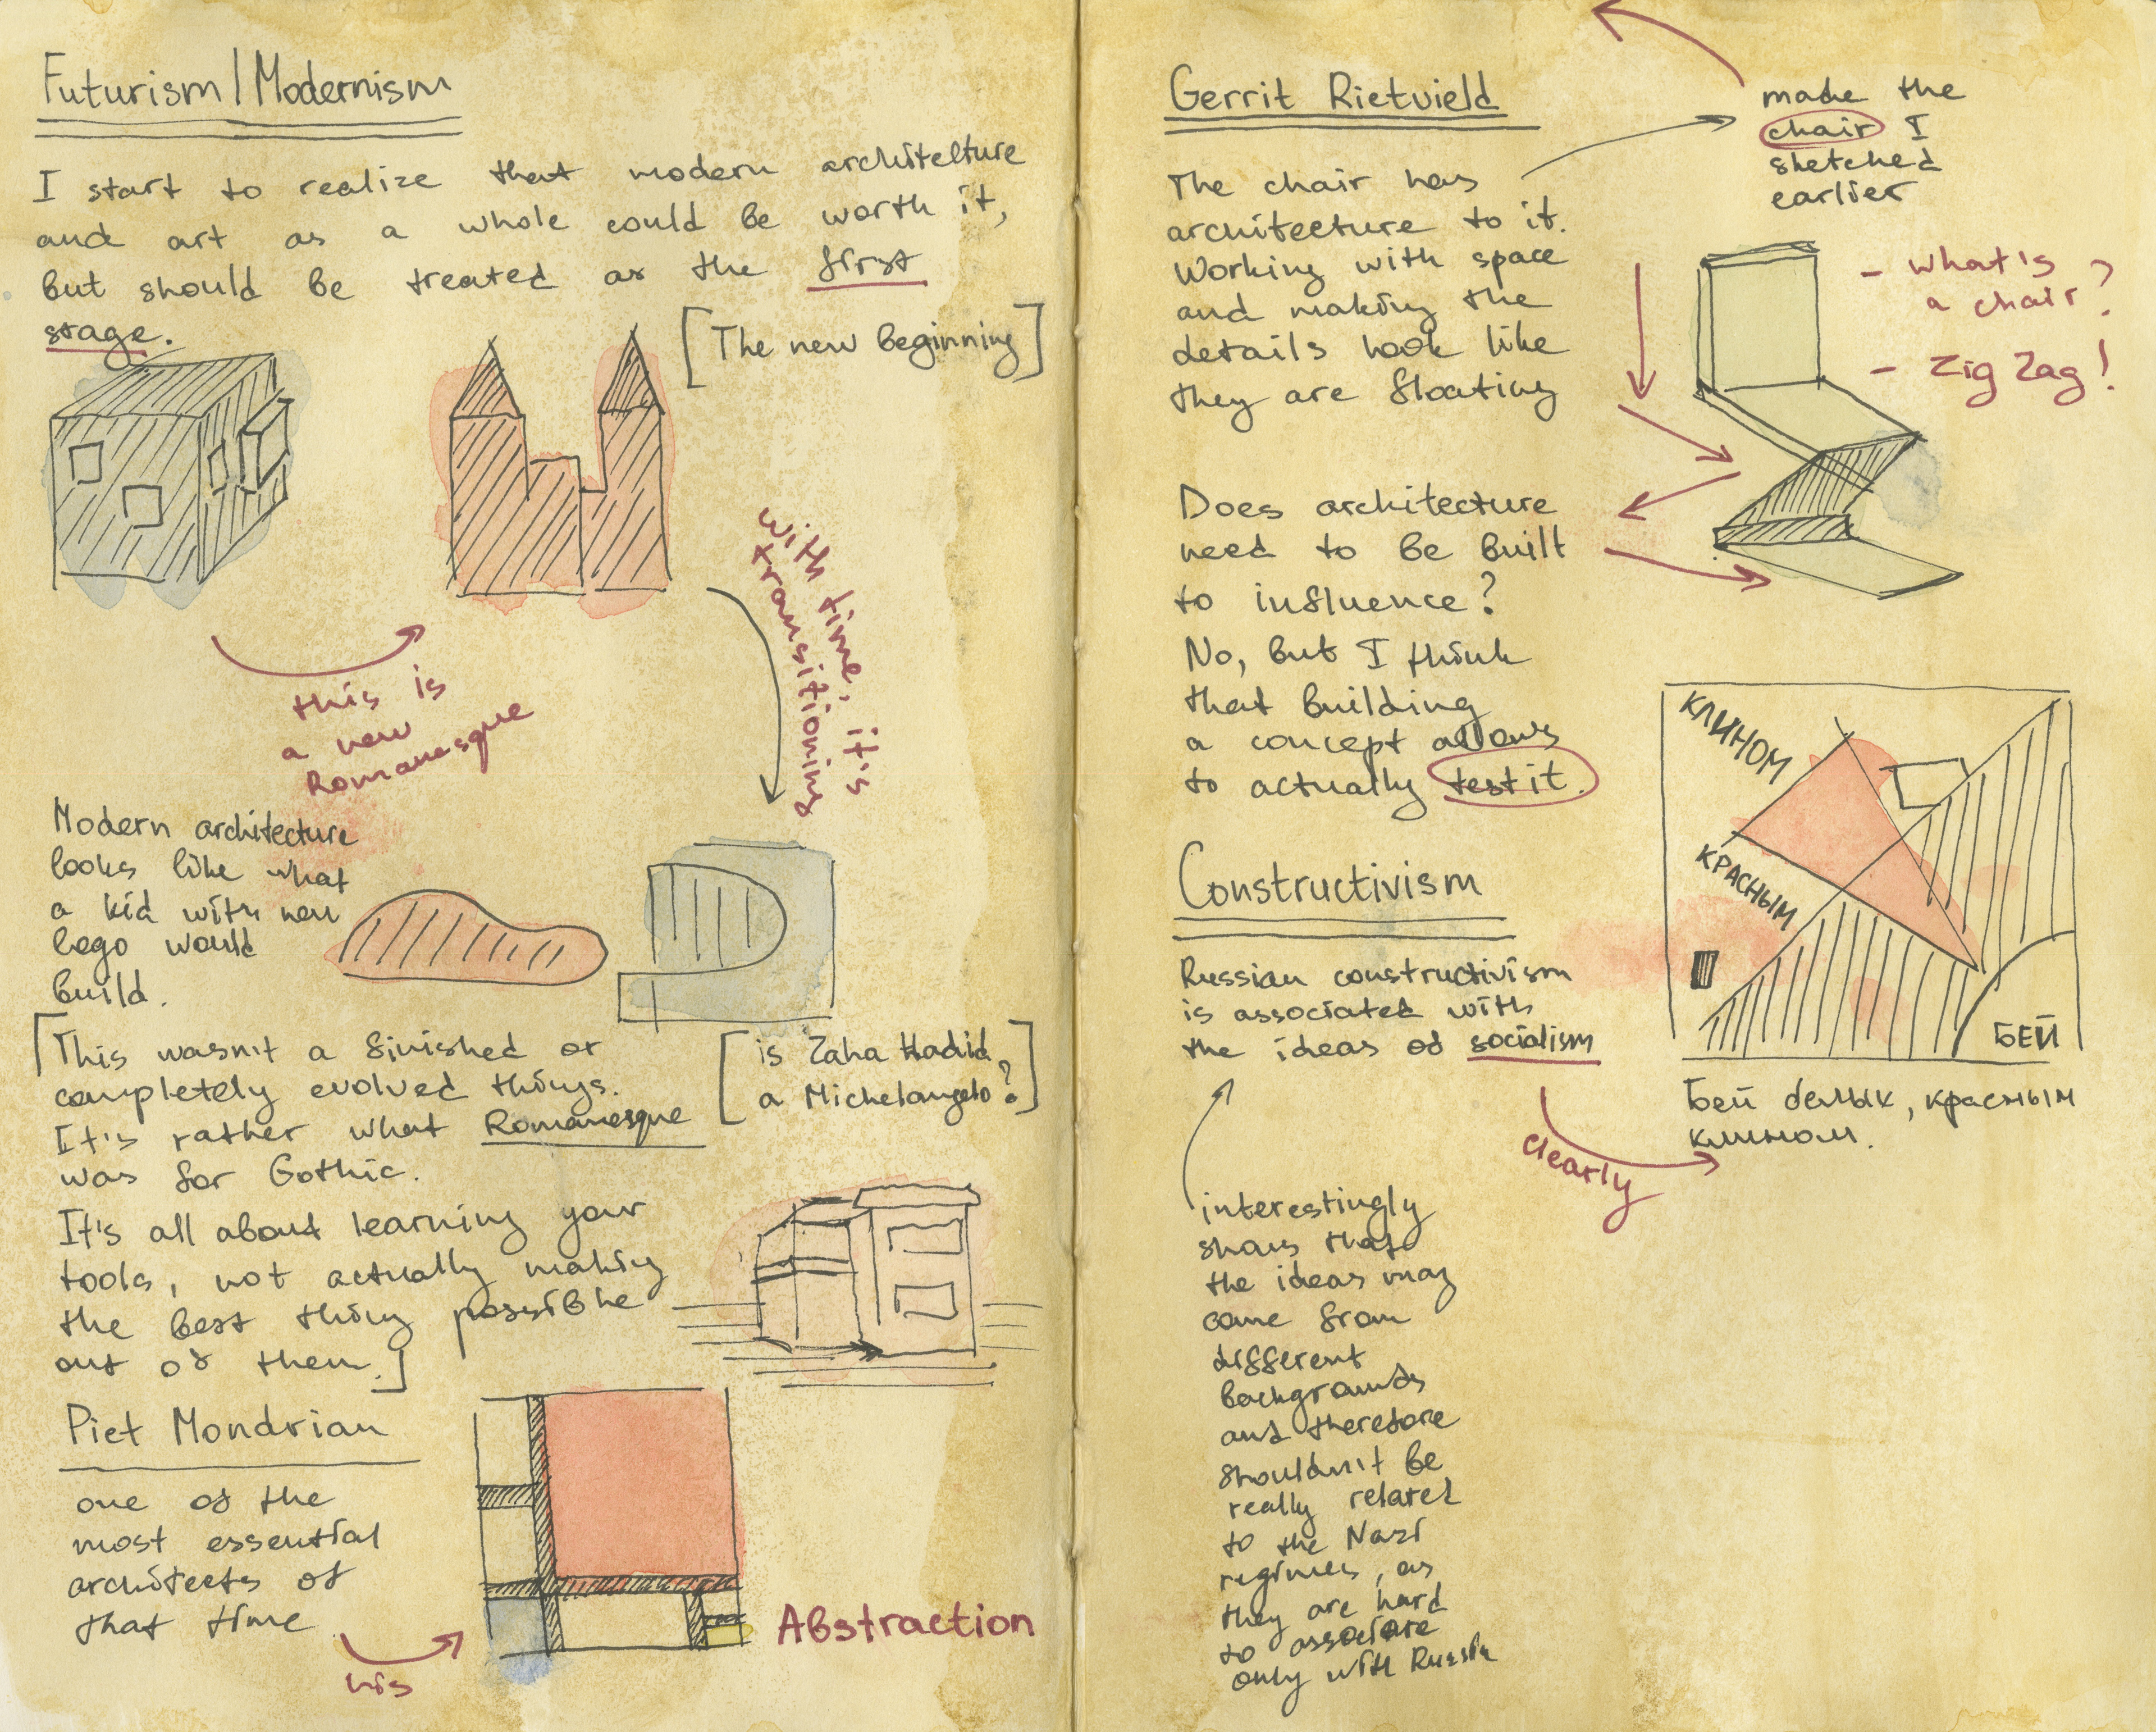 Futurism/Modernism
I start to realize that modern architelture
and art as a whole could be worth it,
but should be treated as the first
stage.
[The new beginning]
this is
a new
Romanesque
with time, it's
transitioning
Modern architecture
looks like what
a kid with new
lego would
build.
[This wasn't a finished or
completely evolved things.
It's rather what Romanesque
was for Gothic.
It's all about learning your
tools, not actually making
the best thing possible
out of them.]
[is Zaha Hadid
a Michelangelo?]
Piet Mondrian
one of the
most essential
architects of
that time
his
Abstraction
Gerrit Rietvield
The chair has
architecture to it.
Working with space
and making the
details look like
they are floating
made the
chair I
sketched
earlier
- what's
a chair?
- Zig Zag!
Does architecture
need to be built
to influence?
No, but I think
that building
a concept allows
to actually test it.
Constructivism
Russian constructivism
is associated with
the ideas of socialism
clearly
КЛИНОМ
КРАСНЫМ
БЕЙ
Бей белых, красным
клином.
interestingly
shows that
the ideas may
come from
different
backgrounds
and therefore
shouldn't be
really related
to the Nazi
regimes, as
they are hard
to associate
only with Russia